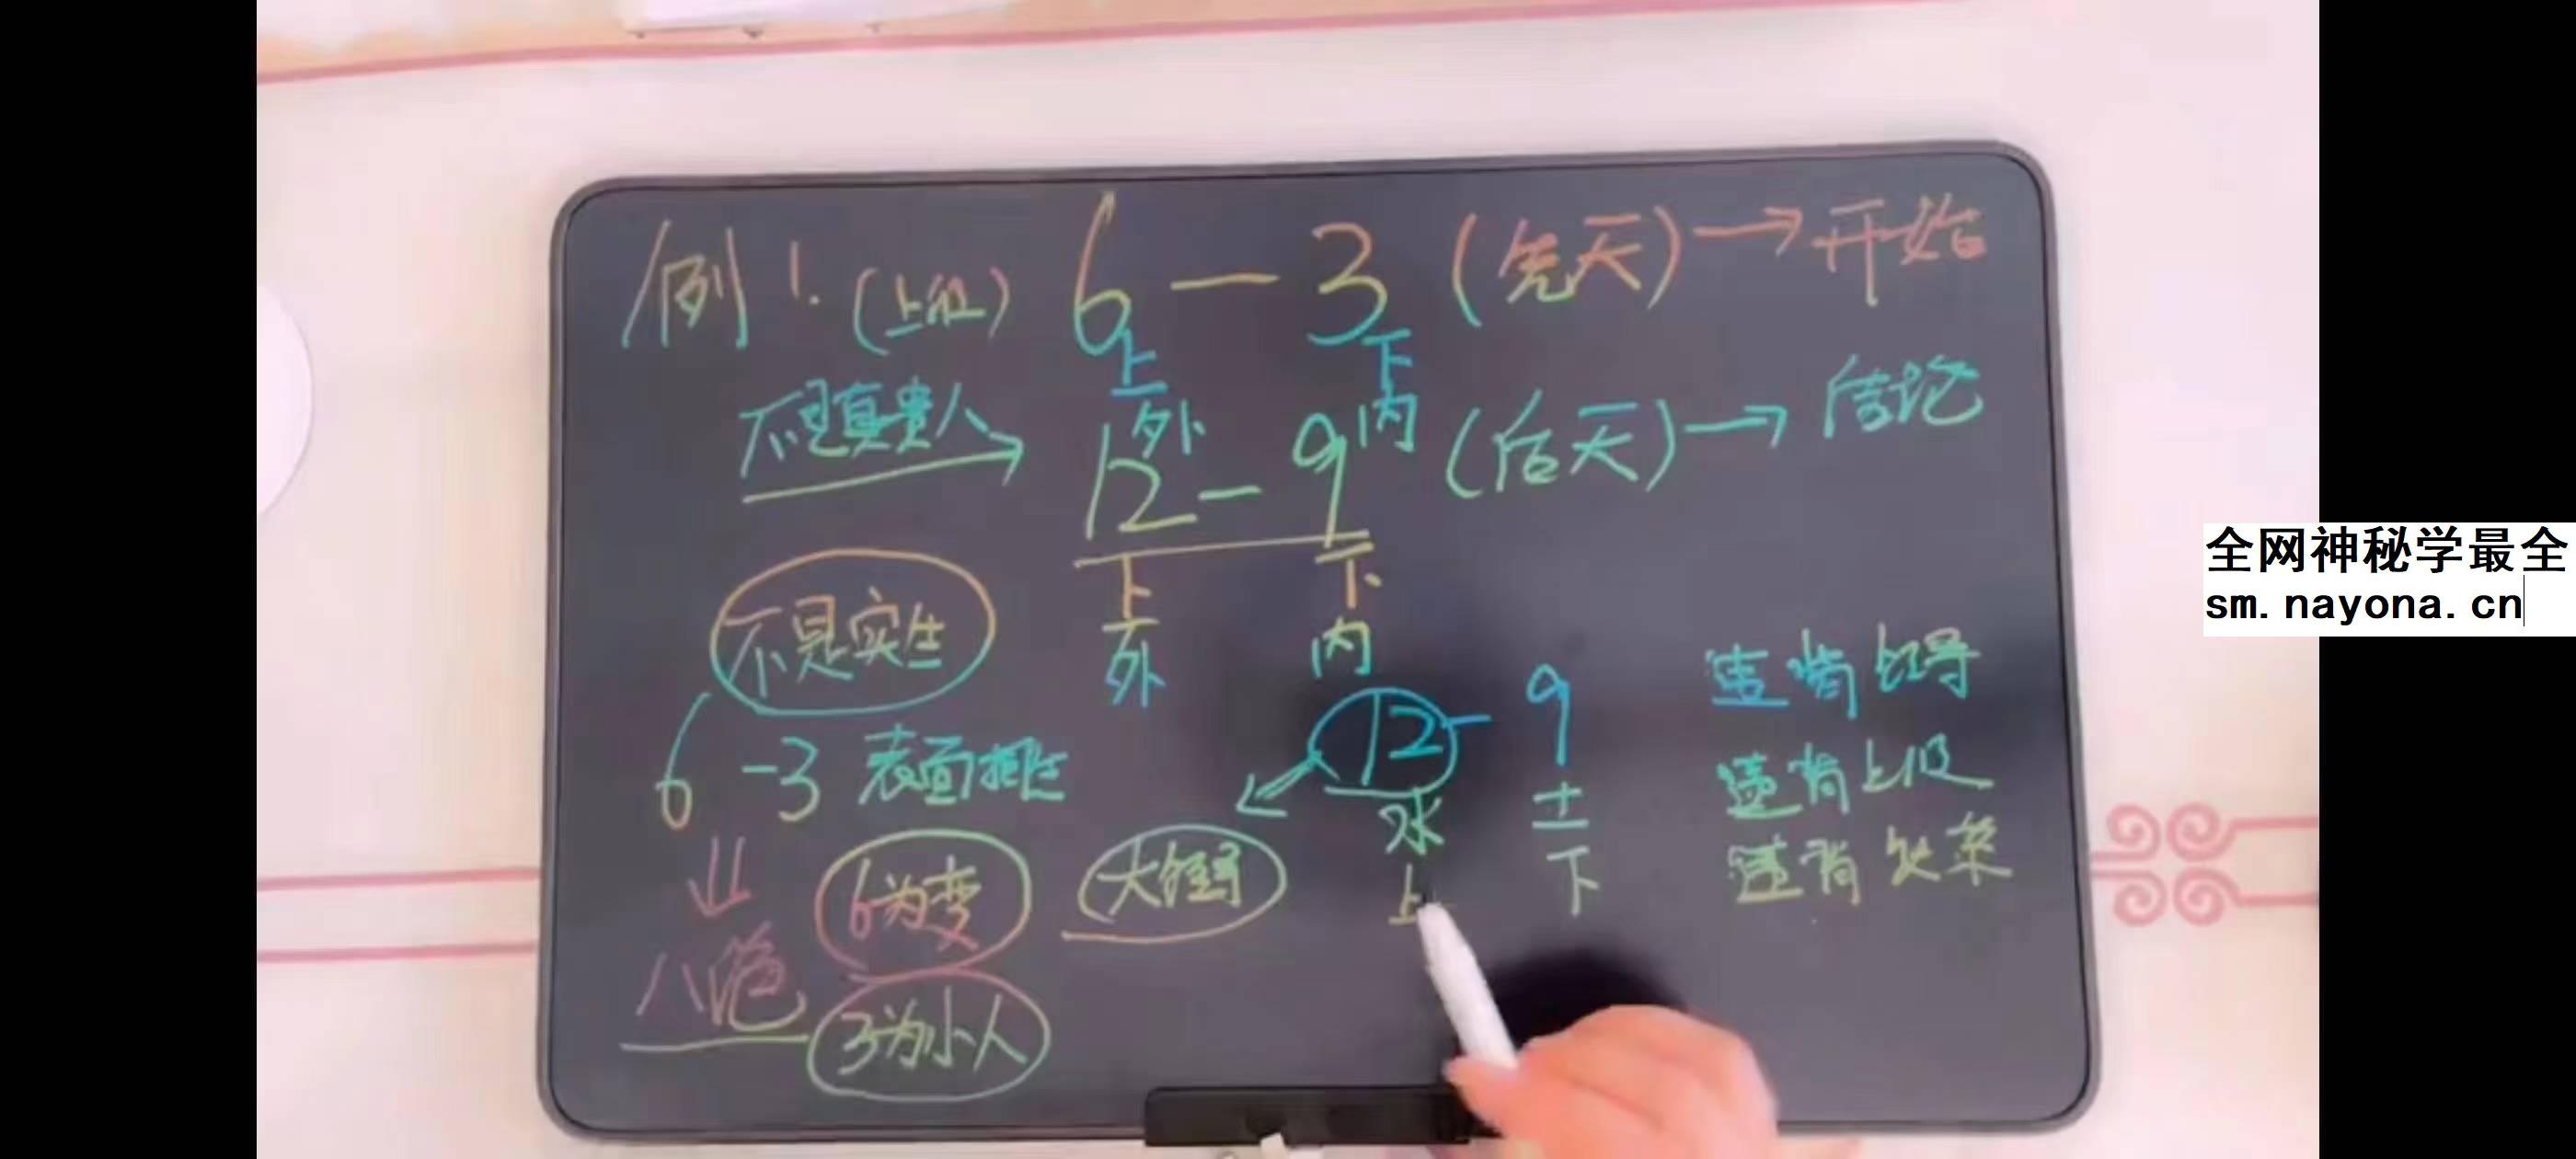 例1. (上征) 6 — 3 (先天) → 开始
上 下
不是真贵人 外 内
12 — 9 (后天) → 结论
上 下
外 内
不是实生
12 - 9
6 - 3 表面
水 土
上 下
违背领导
违背上级
违背
6为变 大领导
3为小人
全网神秘学最全
sm.nayona.cn